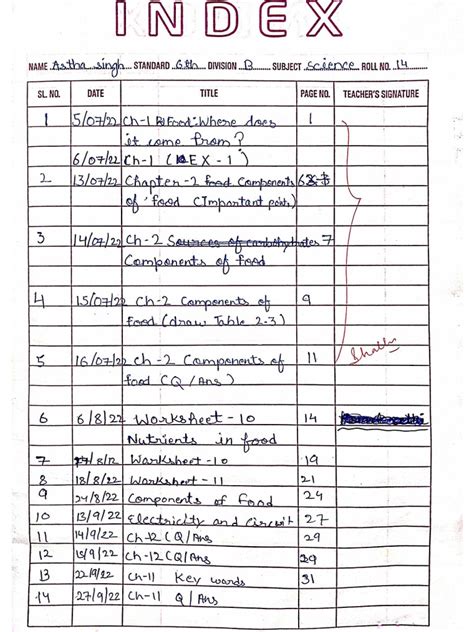 INDEX
NAME Astha singh STANDARD 6th DIVISION B SUBJECT science ROLL NO. 14
SL. NO. DATE TITLE PAGE NO. TEACHER'S SIGNATURE
1 5/07/22 Ch-1 Food: Where does 1
it come from?
6/07/22 Ch-1 ( EX - 1 )
2 13/07/22 Chapter-2 Components 6
of food (Important points)
3 14/07/22 Ch-2 Sources of carbohydrates 7
Components of food
4 15/07/22 Ch-2 Components of 9
food (draw Table 2.3)
5 16/07/22 Ch-2 Components of 11
food (Q/Ans)
6 6/8/22 Worksheet-10 14
Nutrients in food
7 Worksheet-10 19
8 18/8/22 Worksheet-11 21
9 24/8/22 Components of Food 24
10 13/9/22 Electricity and Circuit 27
11 14/9/22 Ch-12 (Q/Ans 29
12 15/9/22 Ch-12 (Q/Ans 29
13 22/9/22 Ch-11 Key words 31
14 27/9/22 Ch-11 Q/Ans